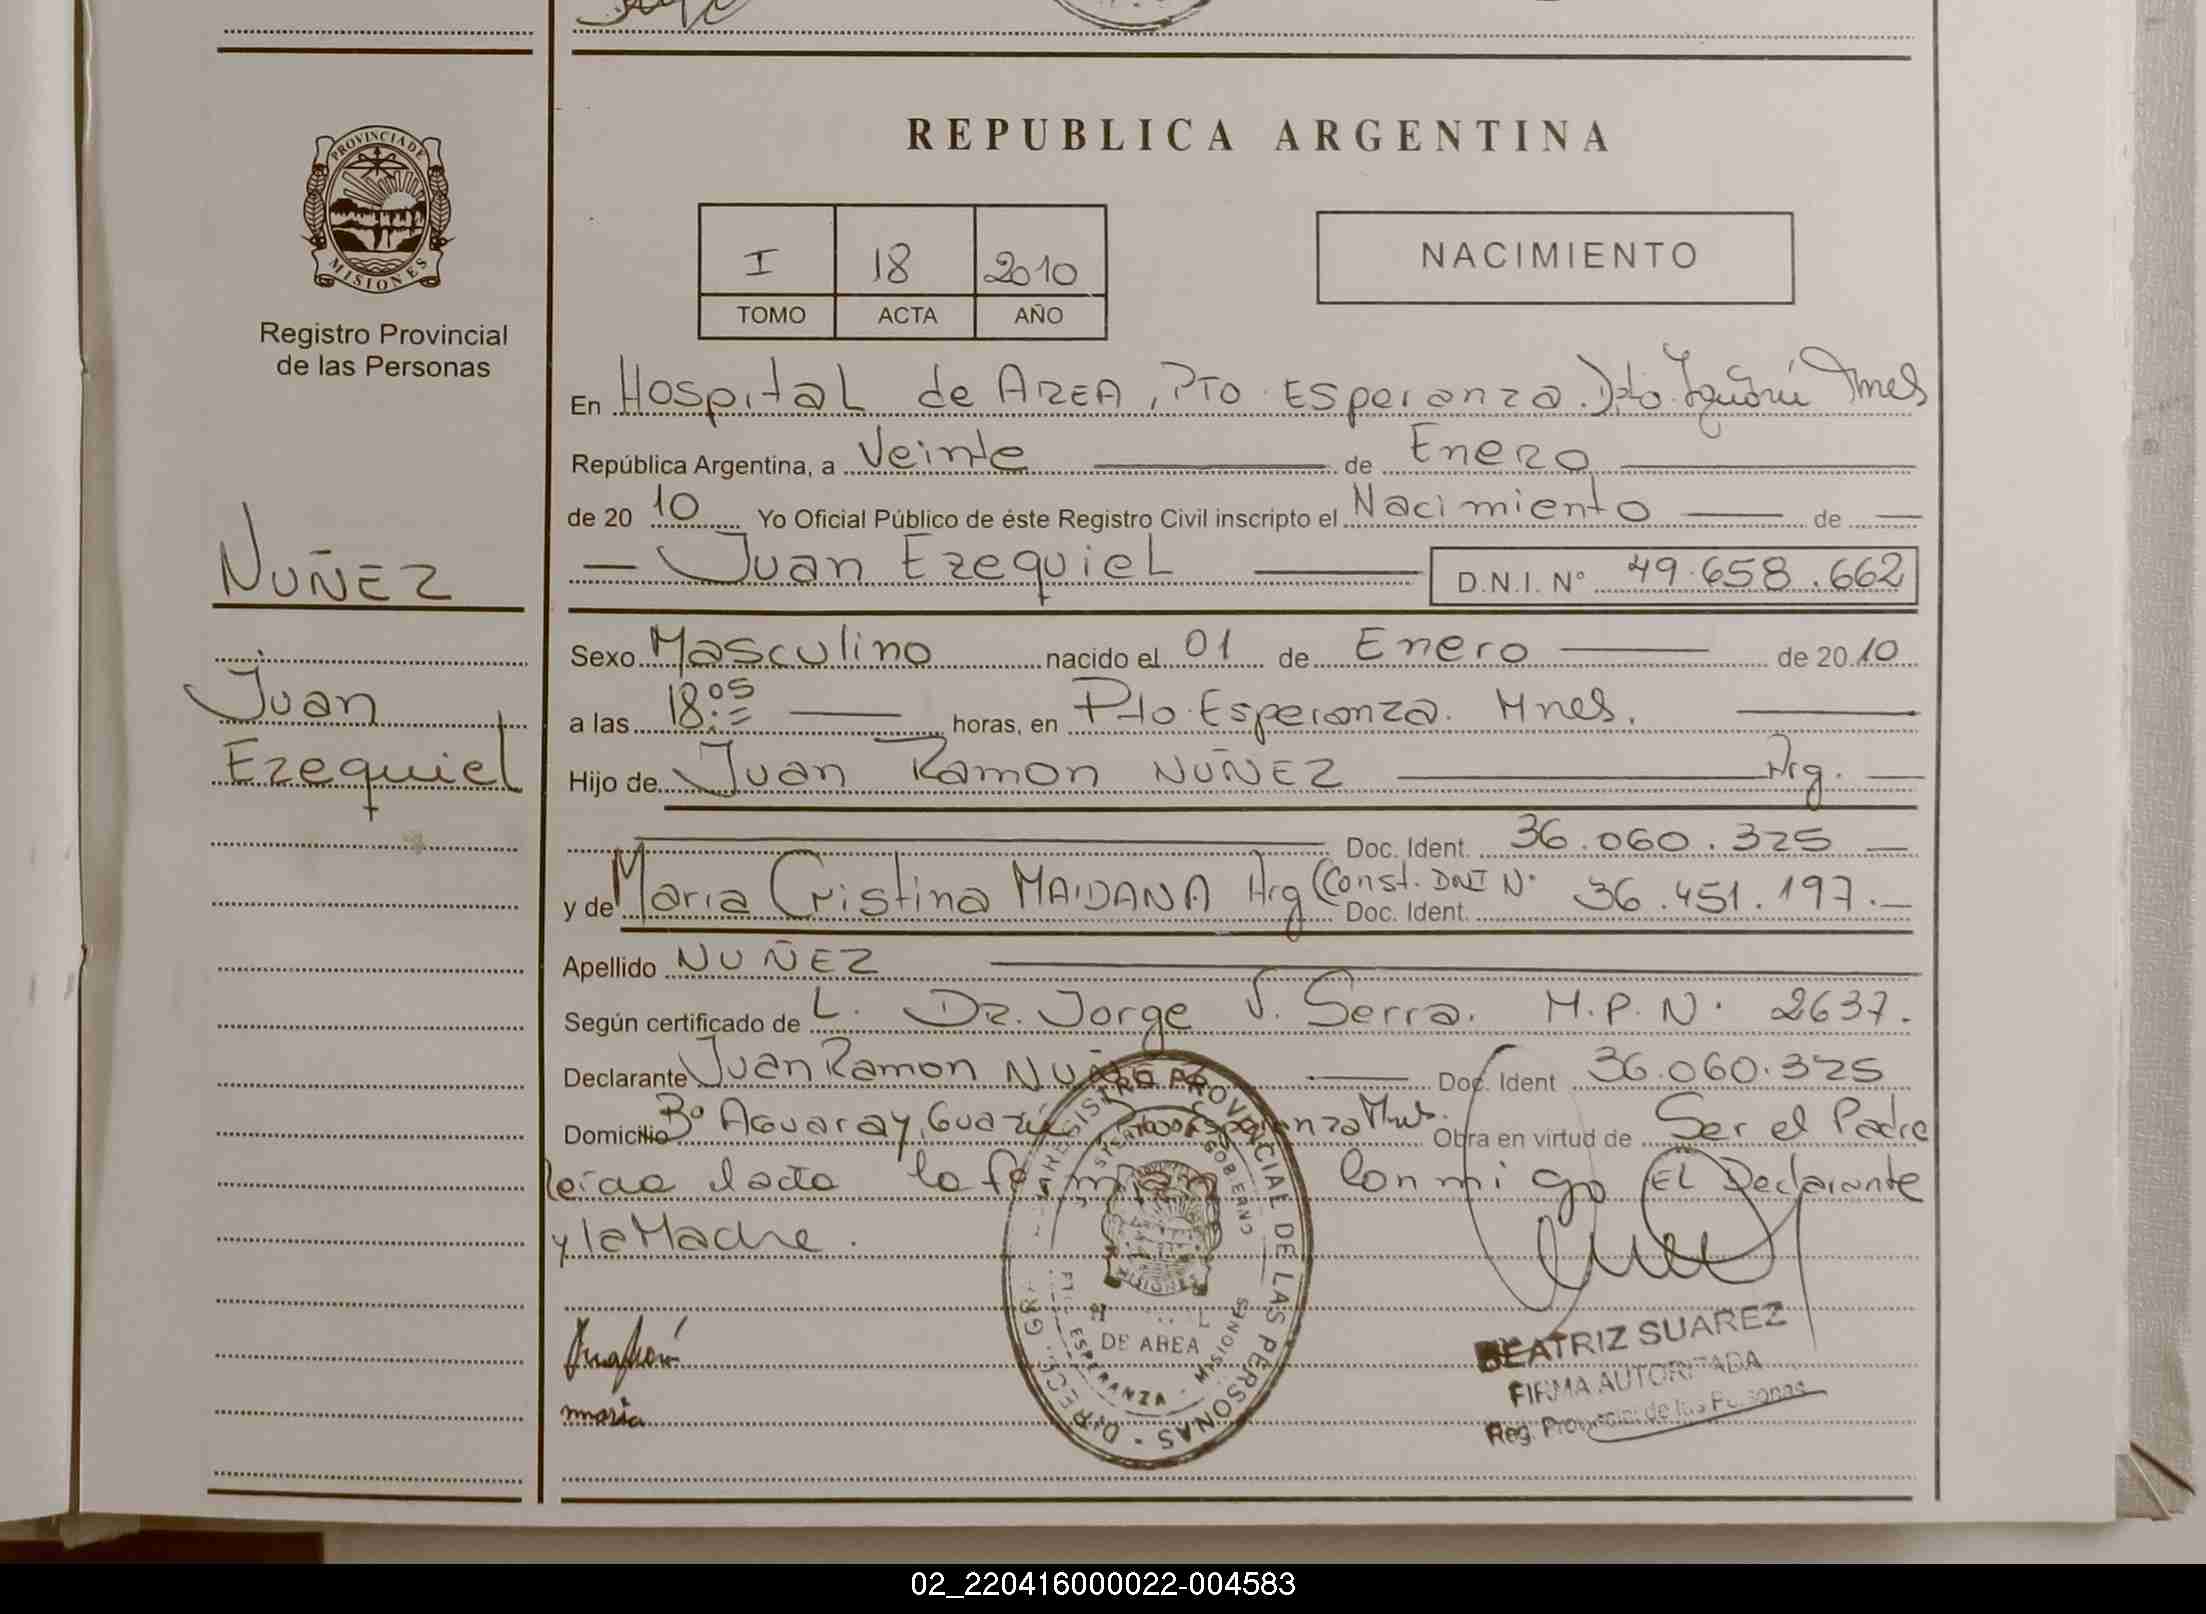 PROVINCIA DE
MISIONES
Registro Provincial
de las Personas
NUÑEZ
Juan
Ezequiel
REPUBLICA ARGENTINA
I 18 2010
TOMO ACTA AÑO
NACIMIENTO
En Hospital de AREA, Pto. Esperanza. Dpto. Iguazú Mnes
República Argentina, a Veinte de Enero
de 2010 Yo Oficial Público de éste Registro Civil inscripto el Nacimiento de
Juan Ezequiel D.N.I. Nº 49.658.662
Sexo Masculino nacido el 01 de Enero de 2010
a las 18:05 horas, en Pto. Esperanza. Mnes.
Hijo de Juan Ramon NUÑEZ Arg.
Doc. Ident. 36.060.325
y de Maria Cristina MAIDANA Arg (Const. DNI Nº
Doc. Ident. 36.451.197.
Apellido NUÑEZ
Según certificado de L. Dr. Jorge V. Serra. M.P.N. 2637.
Declarante Juan Ramon NUÑEZ Doc. Ident 36.060.325
Domicilio Bº Aguaray Guazú Pto Esperanza Mnes. Obra en virtud de Ser el Padre
leída el acta la firman conmigo EL Declarante
y la Madre.
maria
DIRECC. GRAL. REGISTRO PROVINCIAL DE LAS PERSONAS
DE AREA
ESPERANZA - MISIONES
BEATRIZ SUAREZ
FIRMA AUTORIZADA
Reg. Provincial de las Personas
02_220416000022-004583